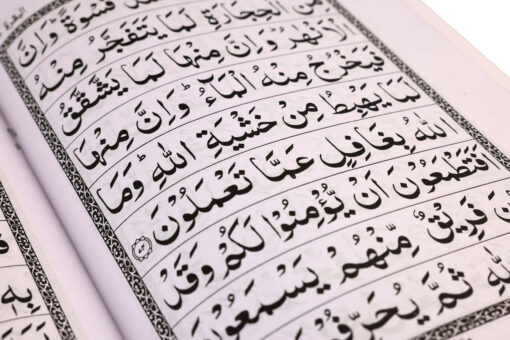 قَسْوَةً ؕ وَاِنَّ
مِنَ الْحِجَارَةِ لَمَا يَتَفَجَّرُ مِنْهُ
الْاَنْهٰرُ ؕ وَاِنَّ مِنْهَا لَمَا يَشَّقَّقُ
فَيَخْرُجُ مِنْهُ الْمَآءُ ؕ وَاِنَّ مِنْهَا
لَمَا يَهْبِطُ مِنْ خَشْيَةِ اللّٰهِ ؕ وَمَا
اللّٰهُ بِغَافِلٍ عَمَّا تَعْمَلُوْنَ ۝۷۴
اَفَتَطْمَعُوْنَ اَنْ يُّؤْمِنُوْا لَكُمْ وَقَدْ
فَرِيْقٌ مِّنْهُمْ يَسْمَعُوْنَ
ثُمَّ
بِهٖ